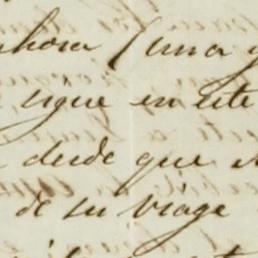 ahora (una y
sigue en este
desde que e
de su viage